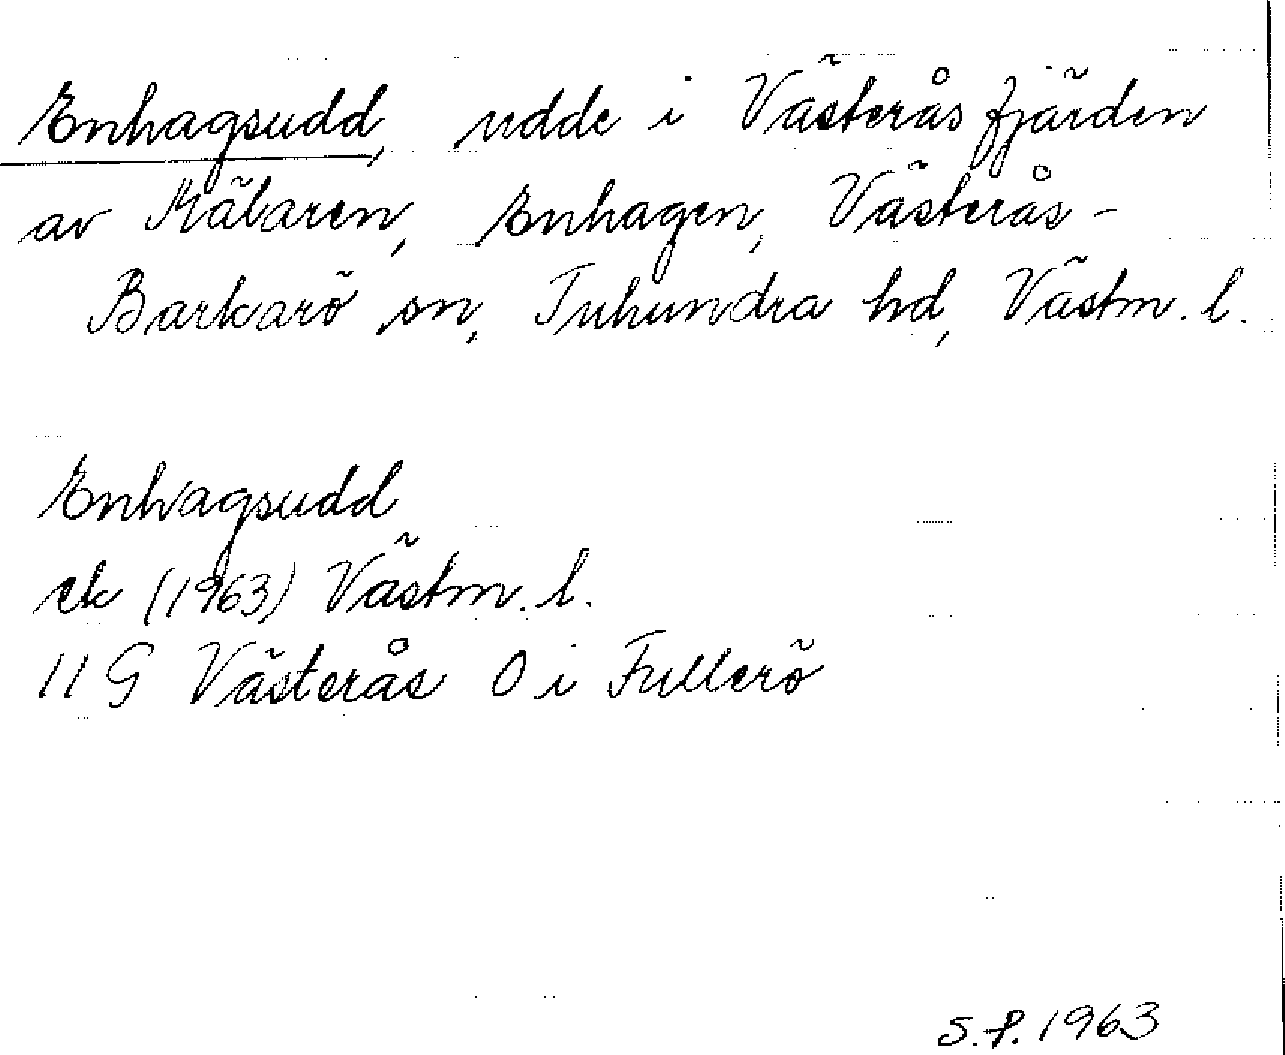 Enhagsudd, udde i Västeråsfjärden
av Mälaren, Enhagen, Västerås-
Barkarö sn, Tuhundra hd, Västm. l.
Enhagsudd
ek (1963) Västm. l.
11 G Västerås O i Fullerö
S.F. 1963